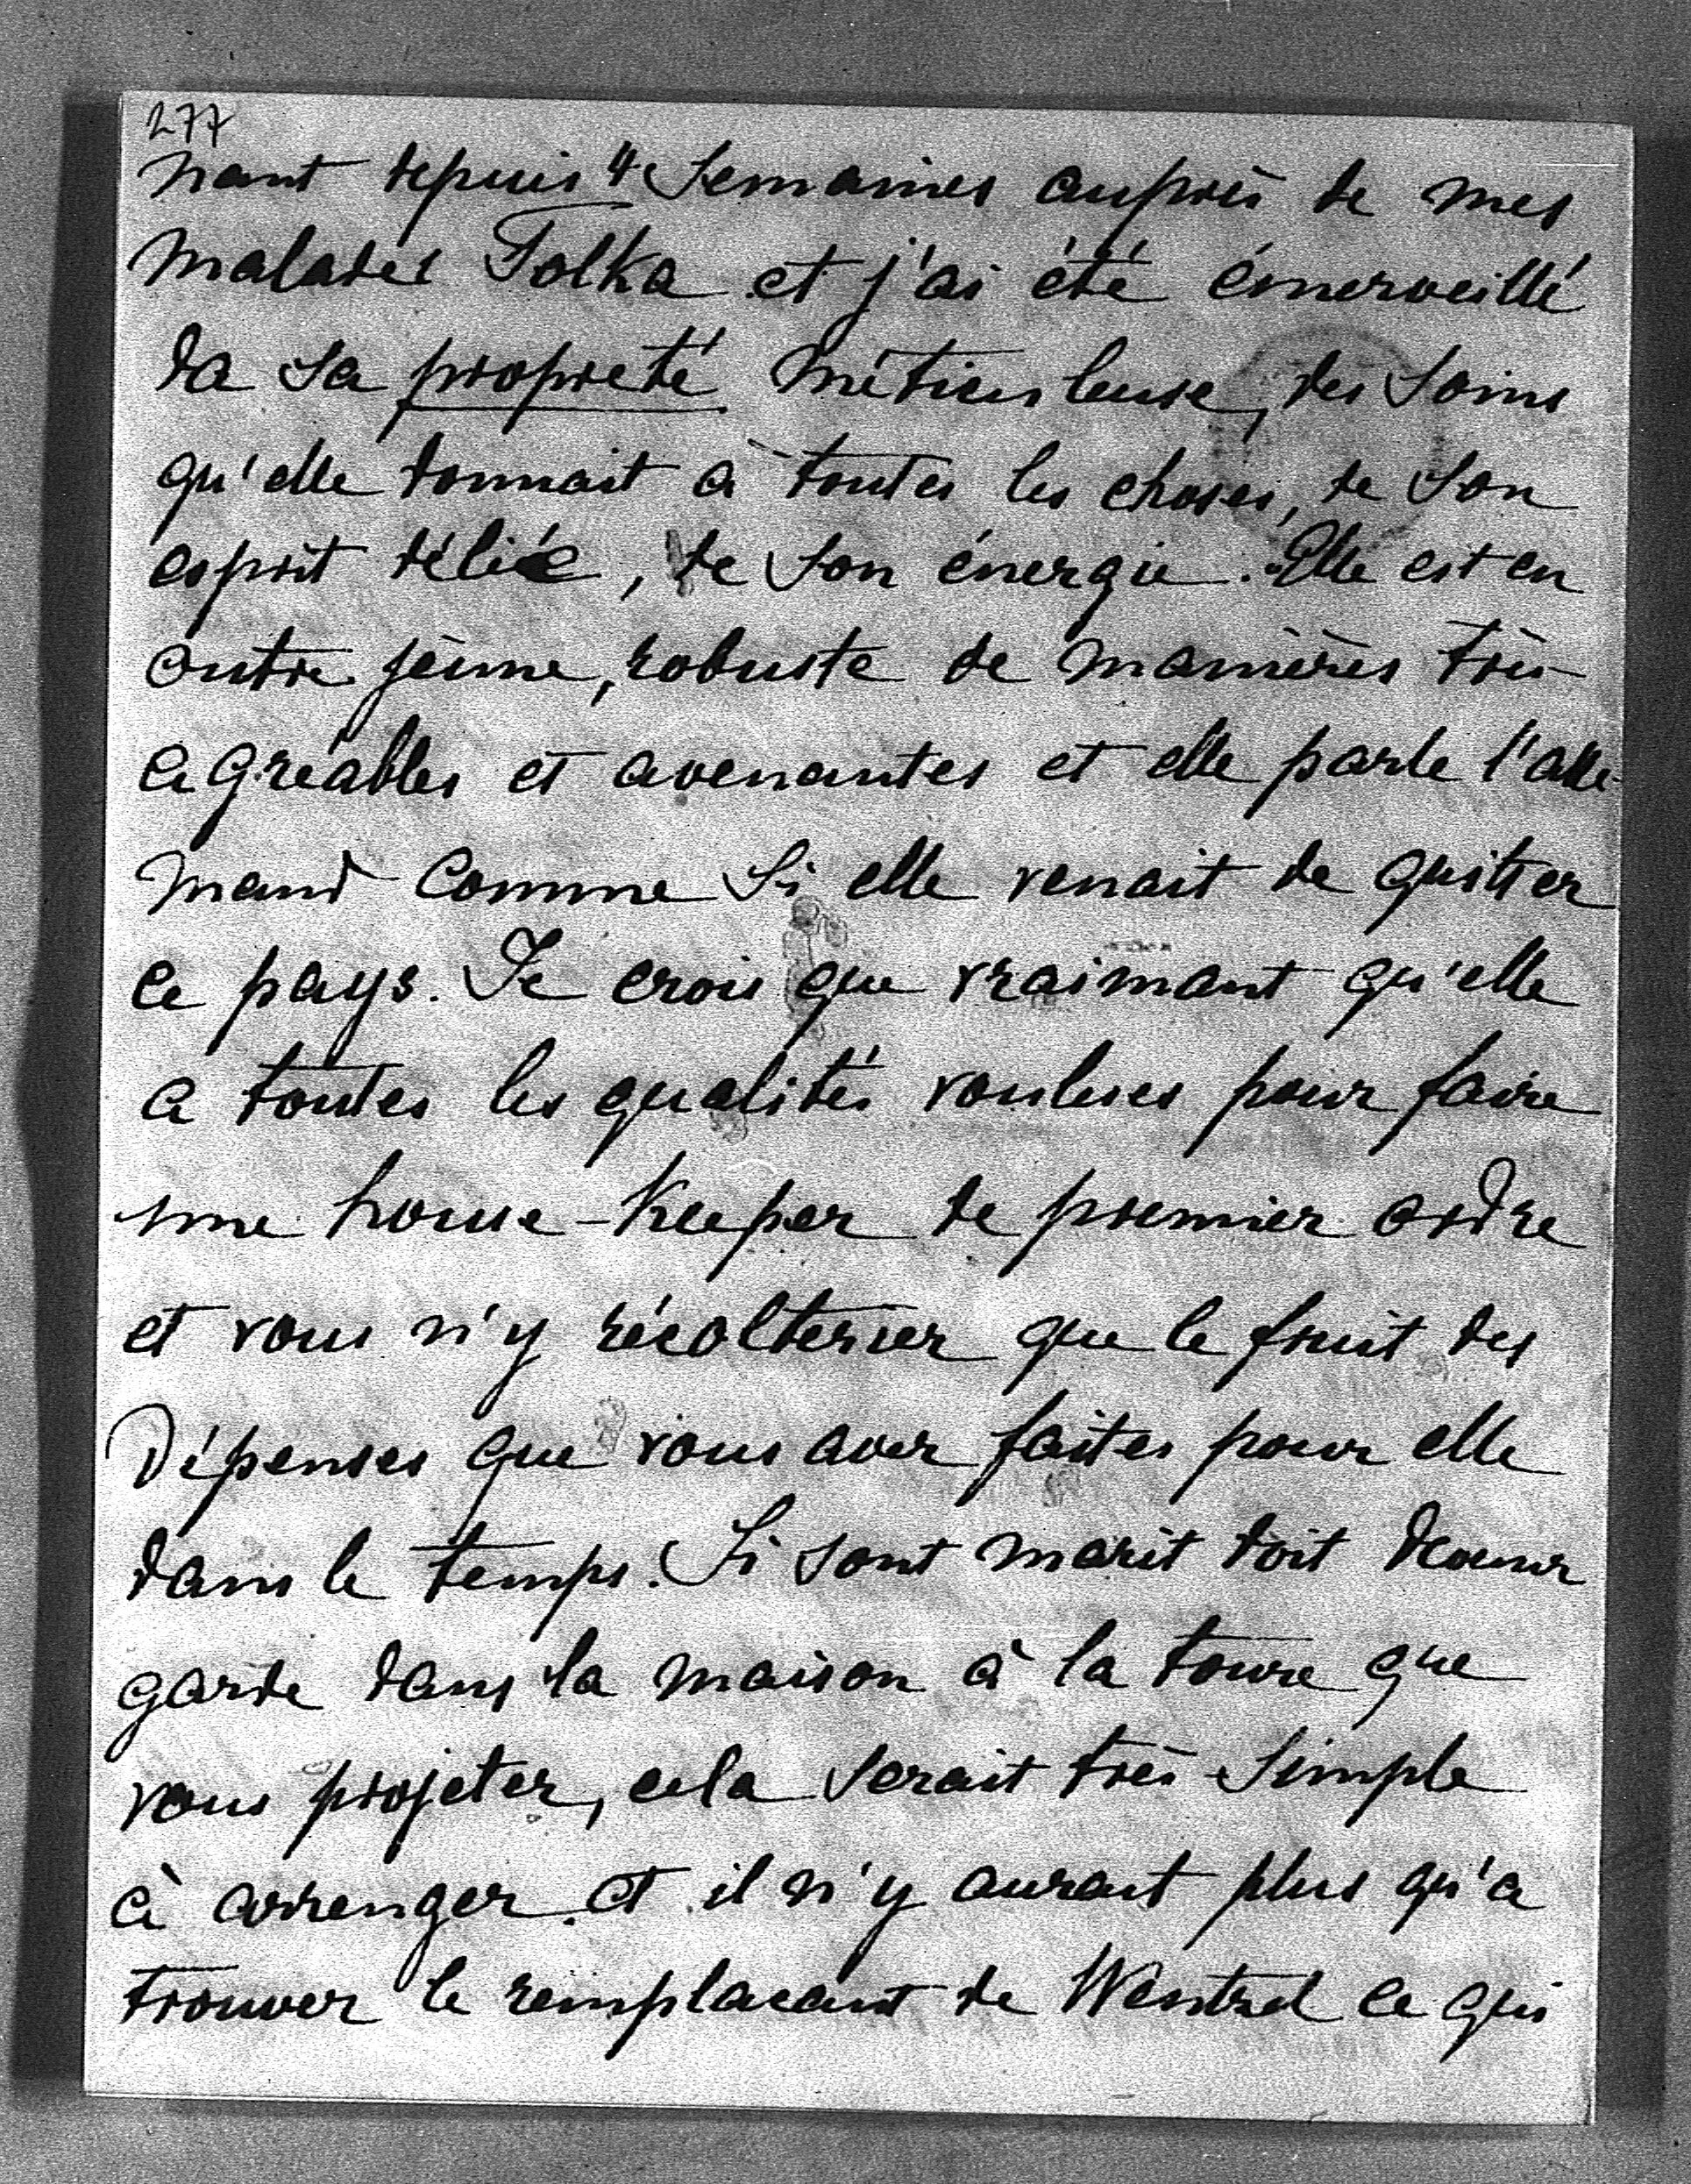 277
nant depuis 4 Semaines auprès de mes
malades Folka et j'ai été émerveillé
da sa propreté méticuleuse, des soins
qu'elle donnait à toutes les choses, de son
esprit délié, de son énergie. Elle est en
outre jeune, robuste de manières très
agréables et avenantes et elle parle l'alle-
mand comme si elle venait de quitter
ce pays. Je crois que vraimant qu'elle
a toutes les qualités voulues pour faire
une house-Keeper de premier ordre
et vous n'y récolterier que le fruit des
Dépenses que vous aver faites pour elle
dans le temps. Si sont marit doit devenir
garde dans la maison à la toure que
vous projeter, cela serait très simple
à arrenger et il n'y aurait plus qu'a
trouver le remplacant de Wentzel ce qui